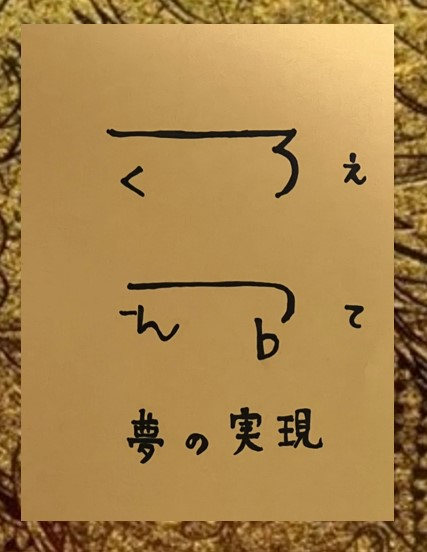 く ろ え
ん b て
夢の実現